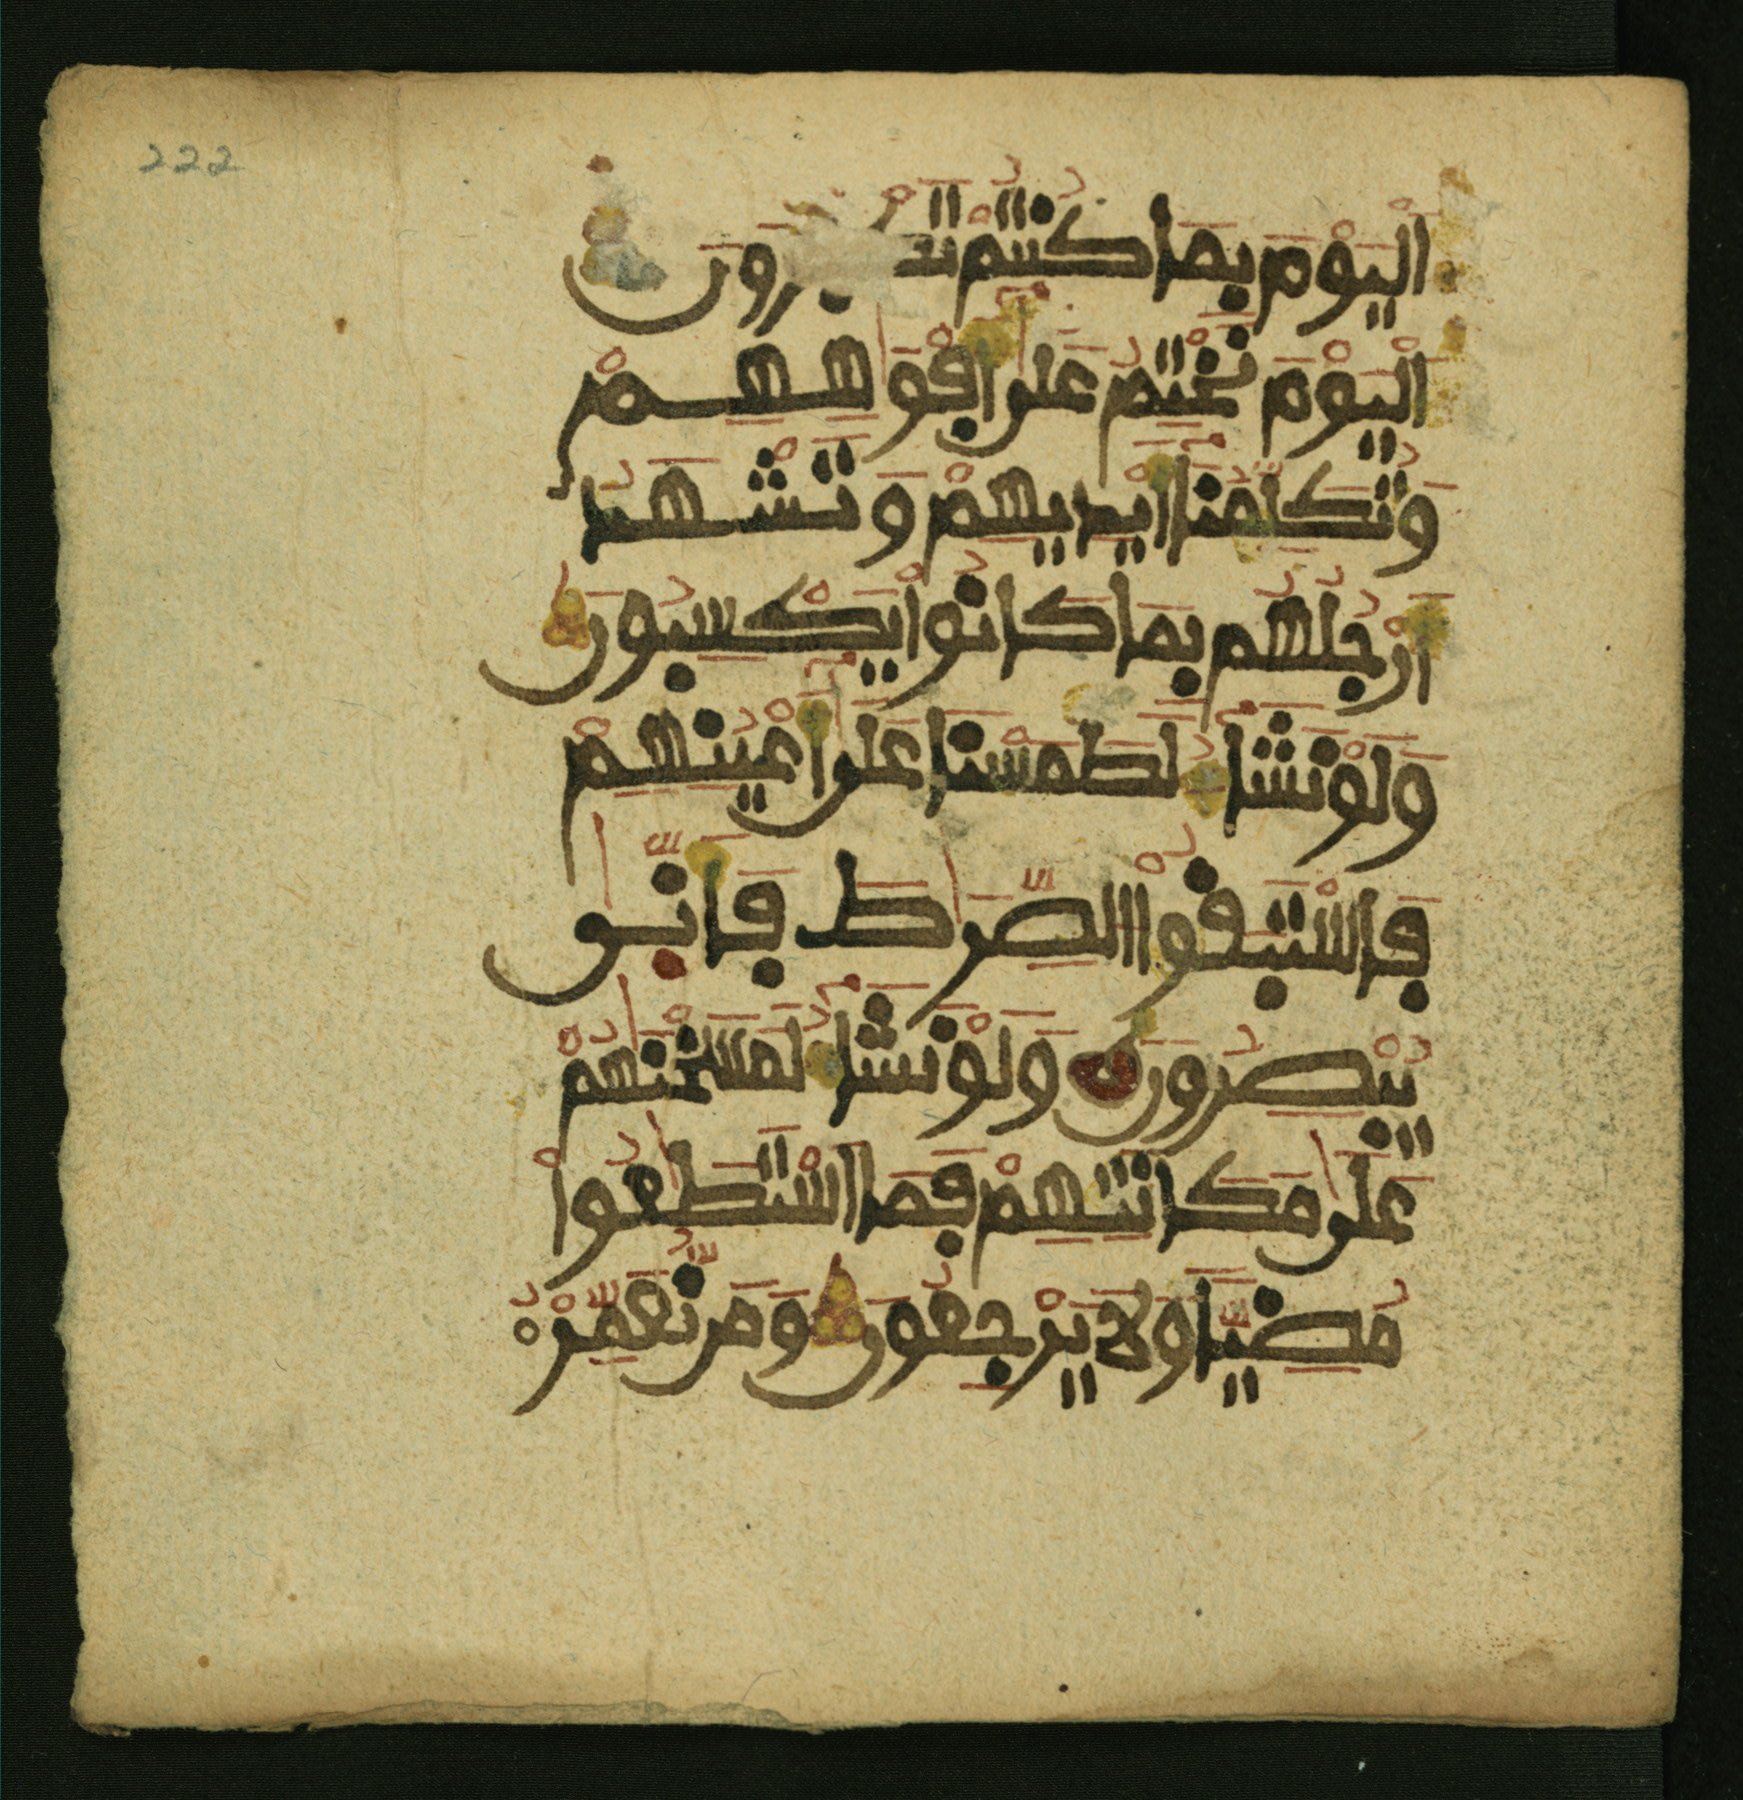 222
اَلْيَوْمَ بِمَا كُنْتُمْ تَكْفُرُونَ
اَلْيَوْمَ نَخْتِمُ عَلَىٰ أَفْوَٰهِهِمْ
وَتُكَلِّمُنَا أَيْدِيهِمْ وَتَشْهَدُ
أَرْجُلُهُم بِمَا كَانُوا يَكْسِبُونَ
وَلَوْ نَشَاءُ لَطَمَسْنَا عَلَىٰ أَعْيُنِهِمْ
فَاسْتَبَقُواْ الصِّرَٰطَ فَأَنّٜىٰ
يُبْصِرُونَ وَلَوْ نَشَاءُ لَمَسَخْنَٰهُمْ
عَلَىٰ مَكَانَتِهِمْ فَمَا اسْتَطَٰعُواْ
مُضِيّاً وَلَا يَرْجِعُونَ وَمَن نُّعَمِّرْهُ